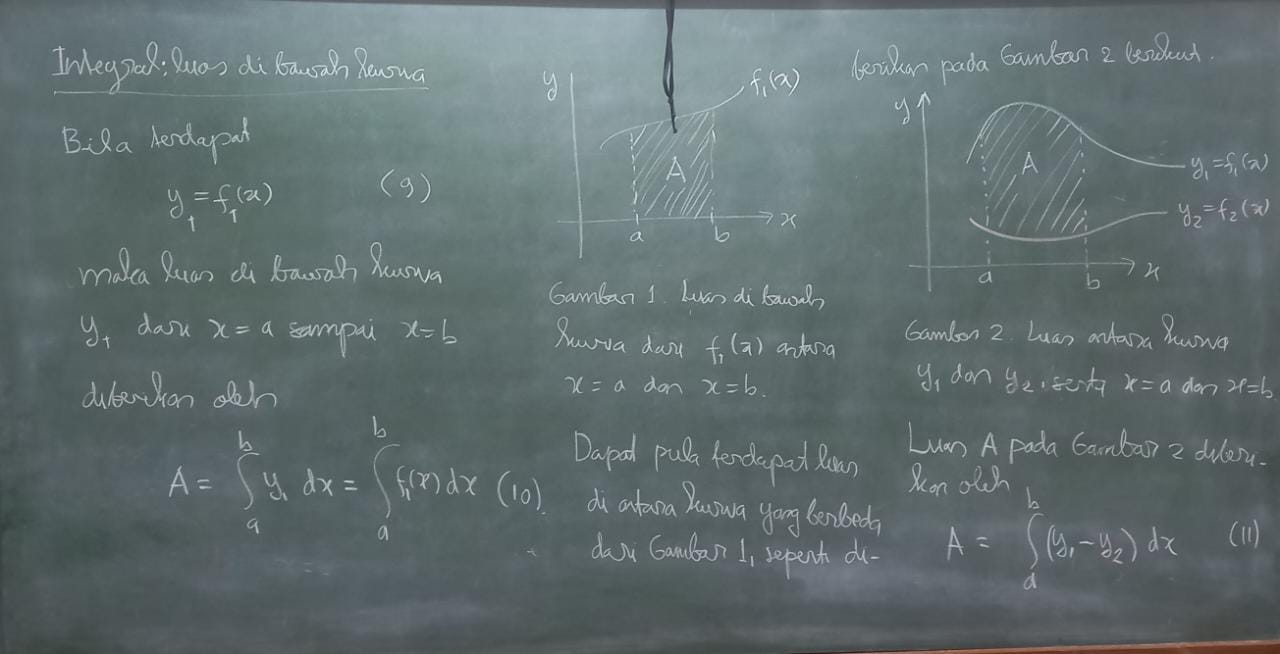 Integral: luas di bawah kurva
Bila terdapat
y₁ = f₁(x) (9)
maka luas di bawah kurva
y₁ dari x = a sampai x = b
diberikan oleh
A = ∫ₐᵇ y₁ dx = ∫ₐᵇ f₁(x) dx (10)
y
f₁(x)
A
a b x
Gambar 1. Luas di bawah
kurva dari f₁(x) antara
x = a dan x = b.
Dapat pula terdapat luas
di antara kurva yang berbeda
dari Gambar 1, seperti di-
berikan pada Gambar 2 berikut.
y
A
y₁ = f₁(x)
y₂ = f₂(x)
a b x
Gambar 2. Luas antara kurva
y₁ dan y₂, serta x = a dan x = b
Luas A pada Gambar 2 diberi-
kan oleh
A = ∫ₐᵇ (y₁ - y₂) dx (11)